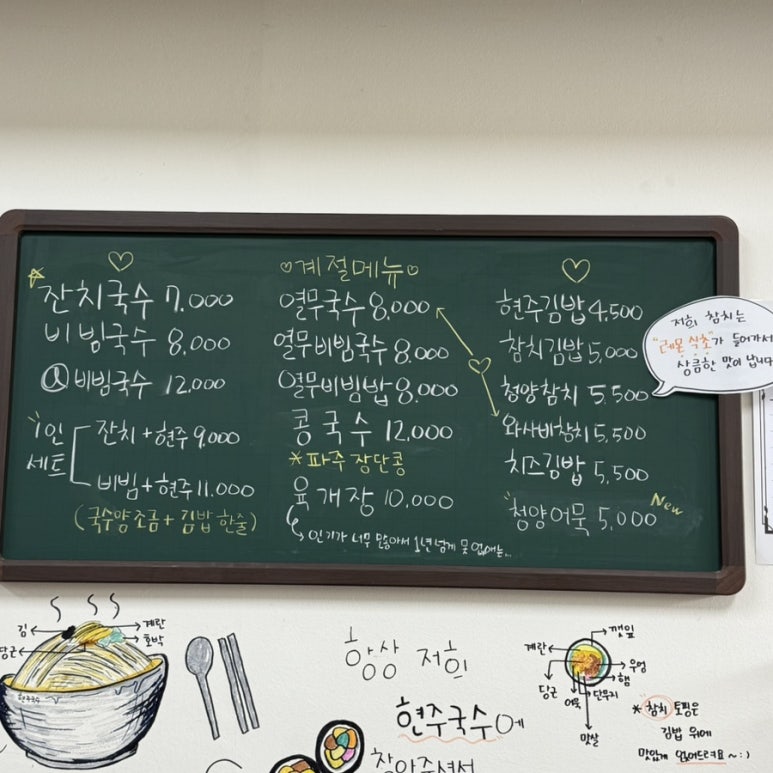 잔치국수 7.000
비빔국수 8.000
大 비빔국수 12.000
1인 세트
잔치+현주 9.000
비빔+현주 11.000
(국수양 조금 + 김밥 한줄)
계절메뉴
열무국수 8.000
열무비빔국수 8.000
열무비빔밥 8.000
콩국수 12.000
*파주 장단콩
육개장 10.000
인기가 너무 많아서 1년 넘게 못 없애는..
현주김밥 4.500
참치김밥 5.000
청양참치 5.500
와사비참치 5.500
치즈김밥 5.500
청양어묵 5.000
New
저희 참치는
"레몬 식초"가 들어가서
상큼한 맛이 납니다
김
당근
계란
호박
현주국수
항상 저희
현주국수에
찾아주셔서
깻잎
계란
우엉
햄
단무지
당근
어묵
맛살
* 참치 토핑은
김밥 위에
맛있게 얹어드려요~:)